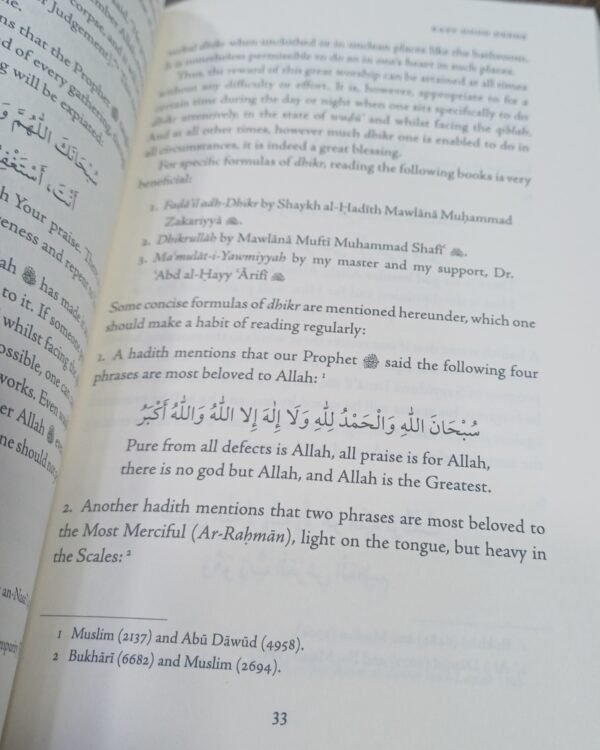 said, "
member Allah
corpse, and
of Judgement)."
ns that the Prophet ﷺ
d of every gathering,
g will be expiated:
سُبْحَانَكَ اللّٰهُمَّ وَ
أَنْتَ، أَسْتَغْفِرُ
h Your praise. There
iveness and repent
ah ﷺ has made
to it. If someone
whilst facing the
possible, one can
works. Even
er Allah
one should not
an-Nasa'i
EASY GOOD DEEDS
verbal dhikr when unclothed or in unclean places like the bathroom.
It is nonetheless permissible to do so in one's heart in such places.
Thus, the reward of this great worship can be attained at all times
without any difficulty or effort. It is, however, appropriate to fix a
certain time during the day or night when one sits specifically to do
dhikr attentively, in the state of wuḍū' and whilst facing the qiblah.
And at all other times, however much dhikr one is enabled to do in
all circumstances, it is indeed a great blessing.
For specific formulas of dhikr, reading the following books is very
beneficial:
1. Faḍā'il adh-Dhikr by Shaykh al-Ḥadīth Mawlānā Muḥammad
Zakariyyā
2. Dhikrullāh by Mawlānā Muftī Muhammad Shafīʿ
3. Ma'mulāt-i-Yawmiyyah by my master and my support, Dr.
ʿAbd al-Ḥayy ʿĀrifī
Some concise formulas of dhikr are mentioned hereunder, which one
should make a habit of reading regularly:
1. A hadith mentions that our Prophet ﷺ said the following four
phrases are most beloved to Allah: ¹
سُبْحَانَ اللّٰهِ وَالْحَمْدُ لِلّٰهِ وَلَا إِلٰهَ إِلَّا اللّٰهُ وَاللّٰهُ أَكْبَرُ
Pure from all defects is Allah, all praise is for Allah,
there is no god but Allah, and Allah is the Greatest.
2. Another hadith mentions that two phrases are most beloved to
the Most Merciful (Ar-Raḥmān), light on the tongue, but heavy in
the Scales: ²
1 Muslim (2137) and Abū Dāwūd (4958).
2 Bukhārī (6682) and Muslim (2694).
33